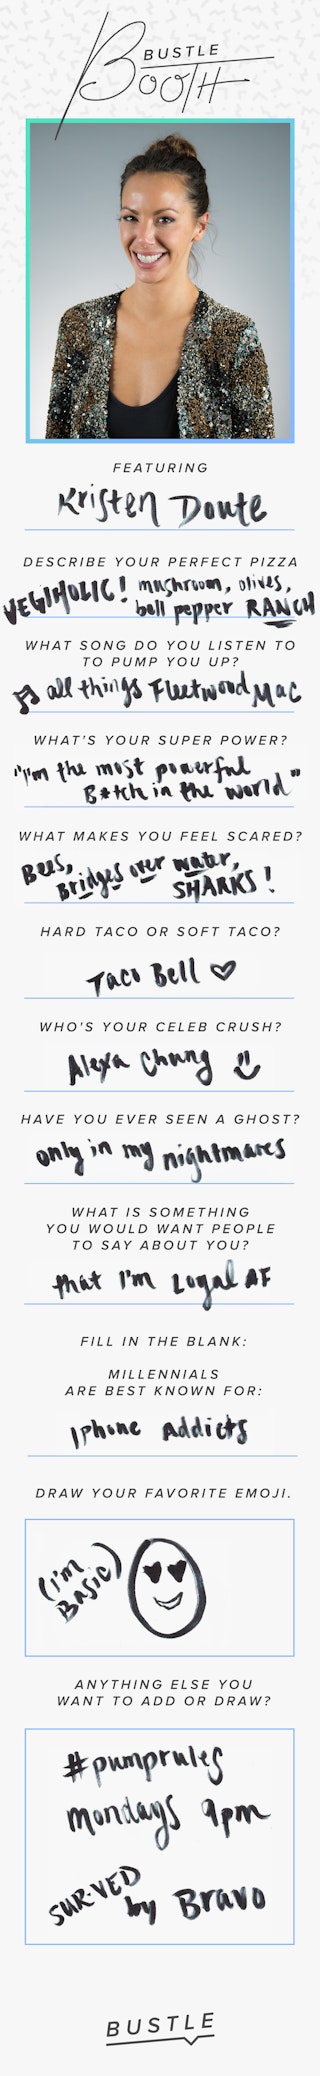 BUSTLE
BOOTH
FEATURING
Kristen Doute
DESCRIBE YOUR PERFECT PIZZA
VEGIHOLIC! mushroom, olives,
bell pepper RANCH
WHAT SONG DO YOU LISTEN TO
TO PUMP YOU UP?
all things Fleetwood Mac
WHAT'S YOUR SUPER POWER?
"I'm the most powerful
B*tch in the world"
WHAT MAKES YOU FEEL SCARED?
Bees,
Bridges over water,
SHARKS!
HARD TACO OR SOFT TACO?
Taco Bell ♡
WHO'S YOUR CELEB CRUSH?
Alexa Chung
HAVE YOU EVER SEEN A GHOST?
only in my nightmares
WHAT IS SOMETHING
YOU WOULD WANT PEOPLE
TO SAY ABOUT YOU?
that I'm Loyal AF
FILL IN THE BLANK:
MILLENNIALS
ARE BEST KNOWN FOR:
Iphone Addicts
DRAW YOUR FAVORITE EMOJI.
(i'm
Basic)
ANYTHING ELSE YOU
WANT TO ADD OR DRAW?
#pumprules
mondays 9pm
SUR-VED
by Bravo
BUSTLE